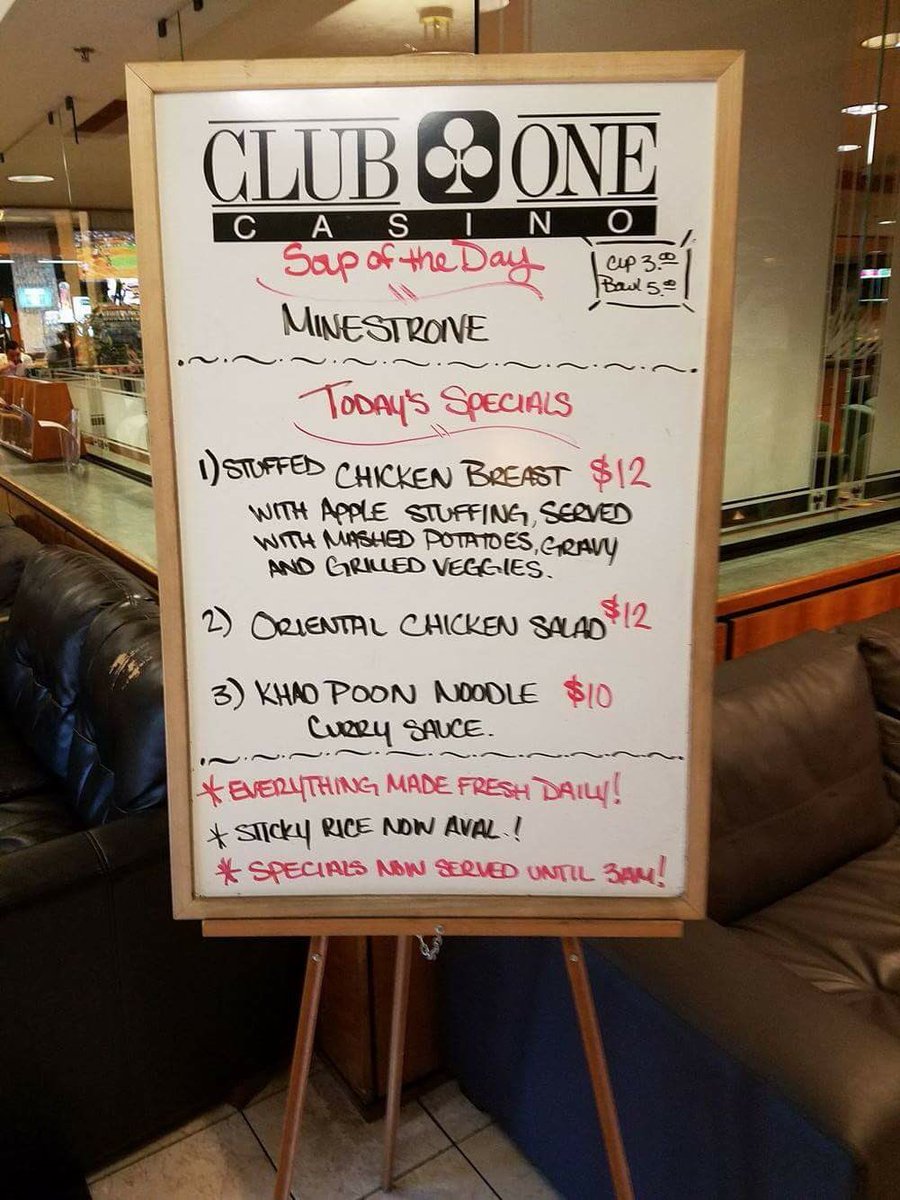 CLUB ONE
CASINO
Soup of the Day
Cup 3.00
Bowl 5.00
MINESTROIVE
TODAY'S SPECIALS
1) STUFFED CHICKEN BREAST $12
WITH APPLE STUFFING, SERVED
WITH MASHED POTATOES, GRAVY
AND GRILLED VEGGIES.
2) ORIENTAL CHICKEN SALAD $12
3) KHAO POON NOODLE $10
CURRY SAUCE.
* EVERYTHING MADE FRESH DAILY!
* STICKY RICE NOW AVAL.!
* SPECIALS NOW SERVED UNTIL 3AM!